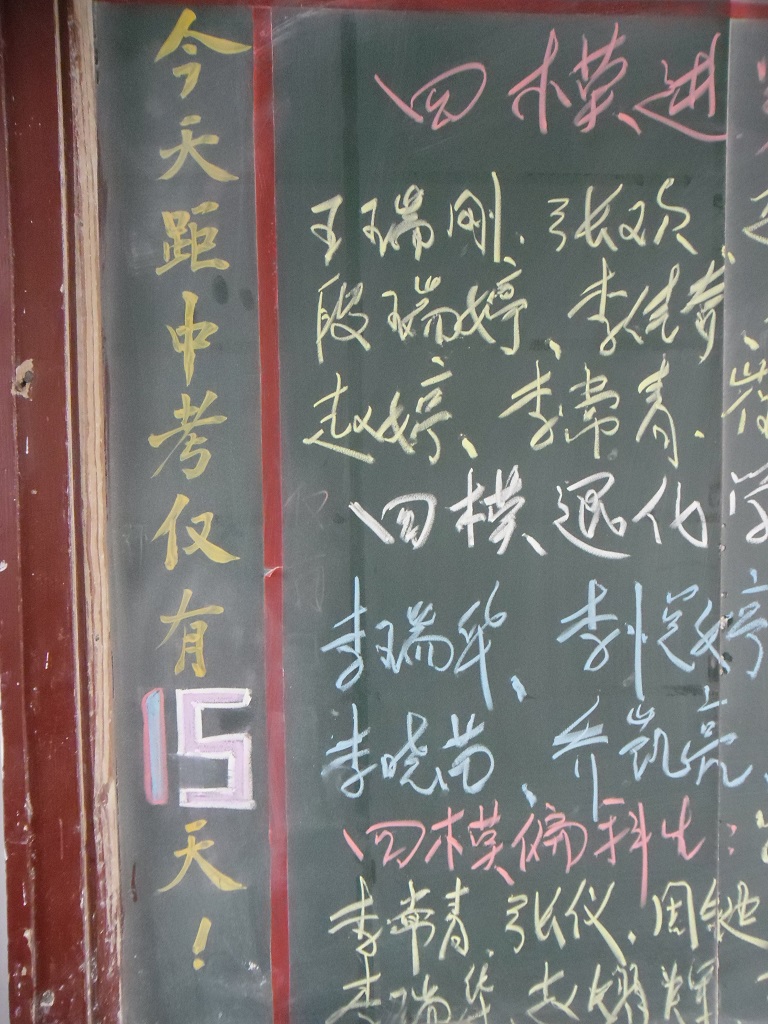 今天距中考仅有15天！
四模进
王瑞刚、张欢、
段瑞婷、李佳梦、
赵婷、李常青、
四模退化学
李瑞华、
李晓苗、乔凯亮、
四模偏科生：
李常青、张仪、周
李瑞华、赵